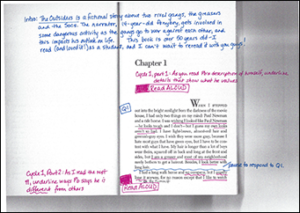 Intro: The Outsiders is a fictional story about two rival gangs, the greasers
and the Socs. The narrator, 14-year-old Ponyboy, gets involved in
some dangerous activity as the gangs go up against each other, and
this impacts his outlook on life. This book is over 50 years old - I
read (and loved it!) as a student, and I can't wait to reread it with you guys!
Chapter 1
Cycle 1, part 1: As you read the description of himself, underline
details that show what he values
READ ALOUD
Q1
WHEN I STEPPED
out into the bright sunlight from the darkness of the movie
house, I had only two things on my mind: Paul Newman
and a ride home. I was wishing I looked like Paul Newman
—he looks tough and I don't—but I guess my own looks
aren't so bad. I have light-brown, almost-red hair and
greenish-gray eyes. I wish they were more gray, because I
hate most guys that have green eyes, but I have to be con-
tent with what I have. My hair is longer than a lot of boys
wear theirs, squared off in back and long at the front and
sides, but I am a greaser and most of my neighborhood
rarely bothers to get a haircut. Besides, I look better with
long hair.
Cycle 1, Part 2: As I read the next
¶, underline ways Pb says he is
different from others
READ ALOUD